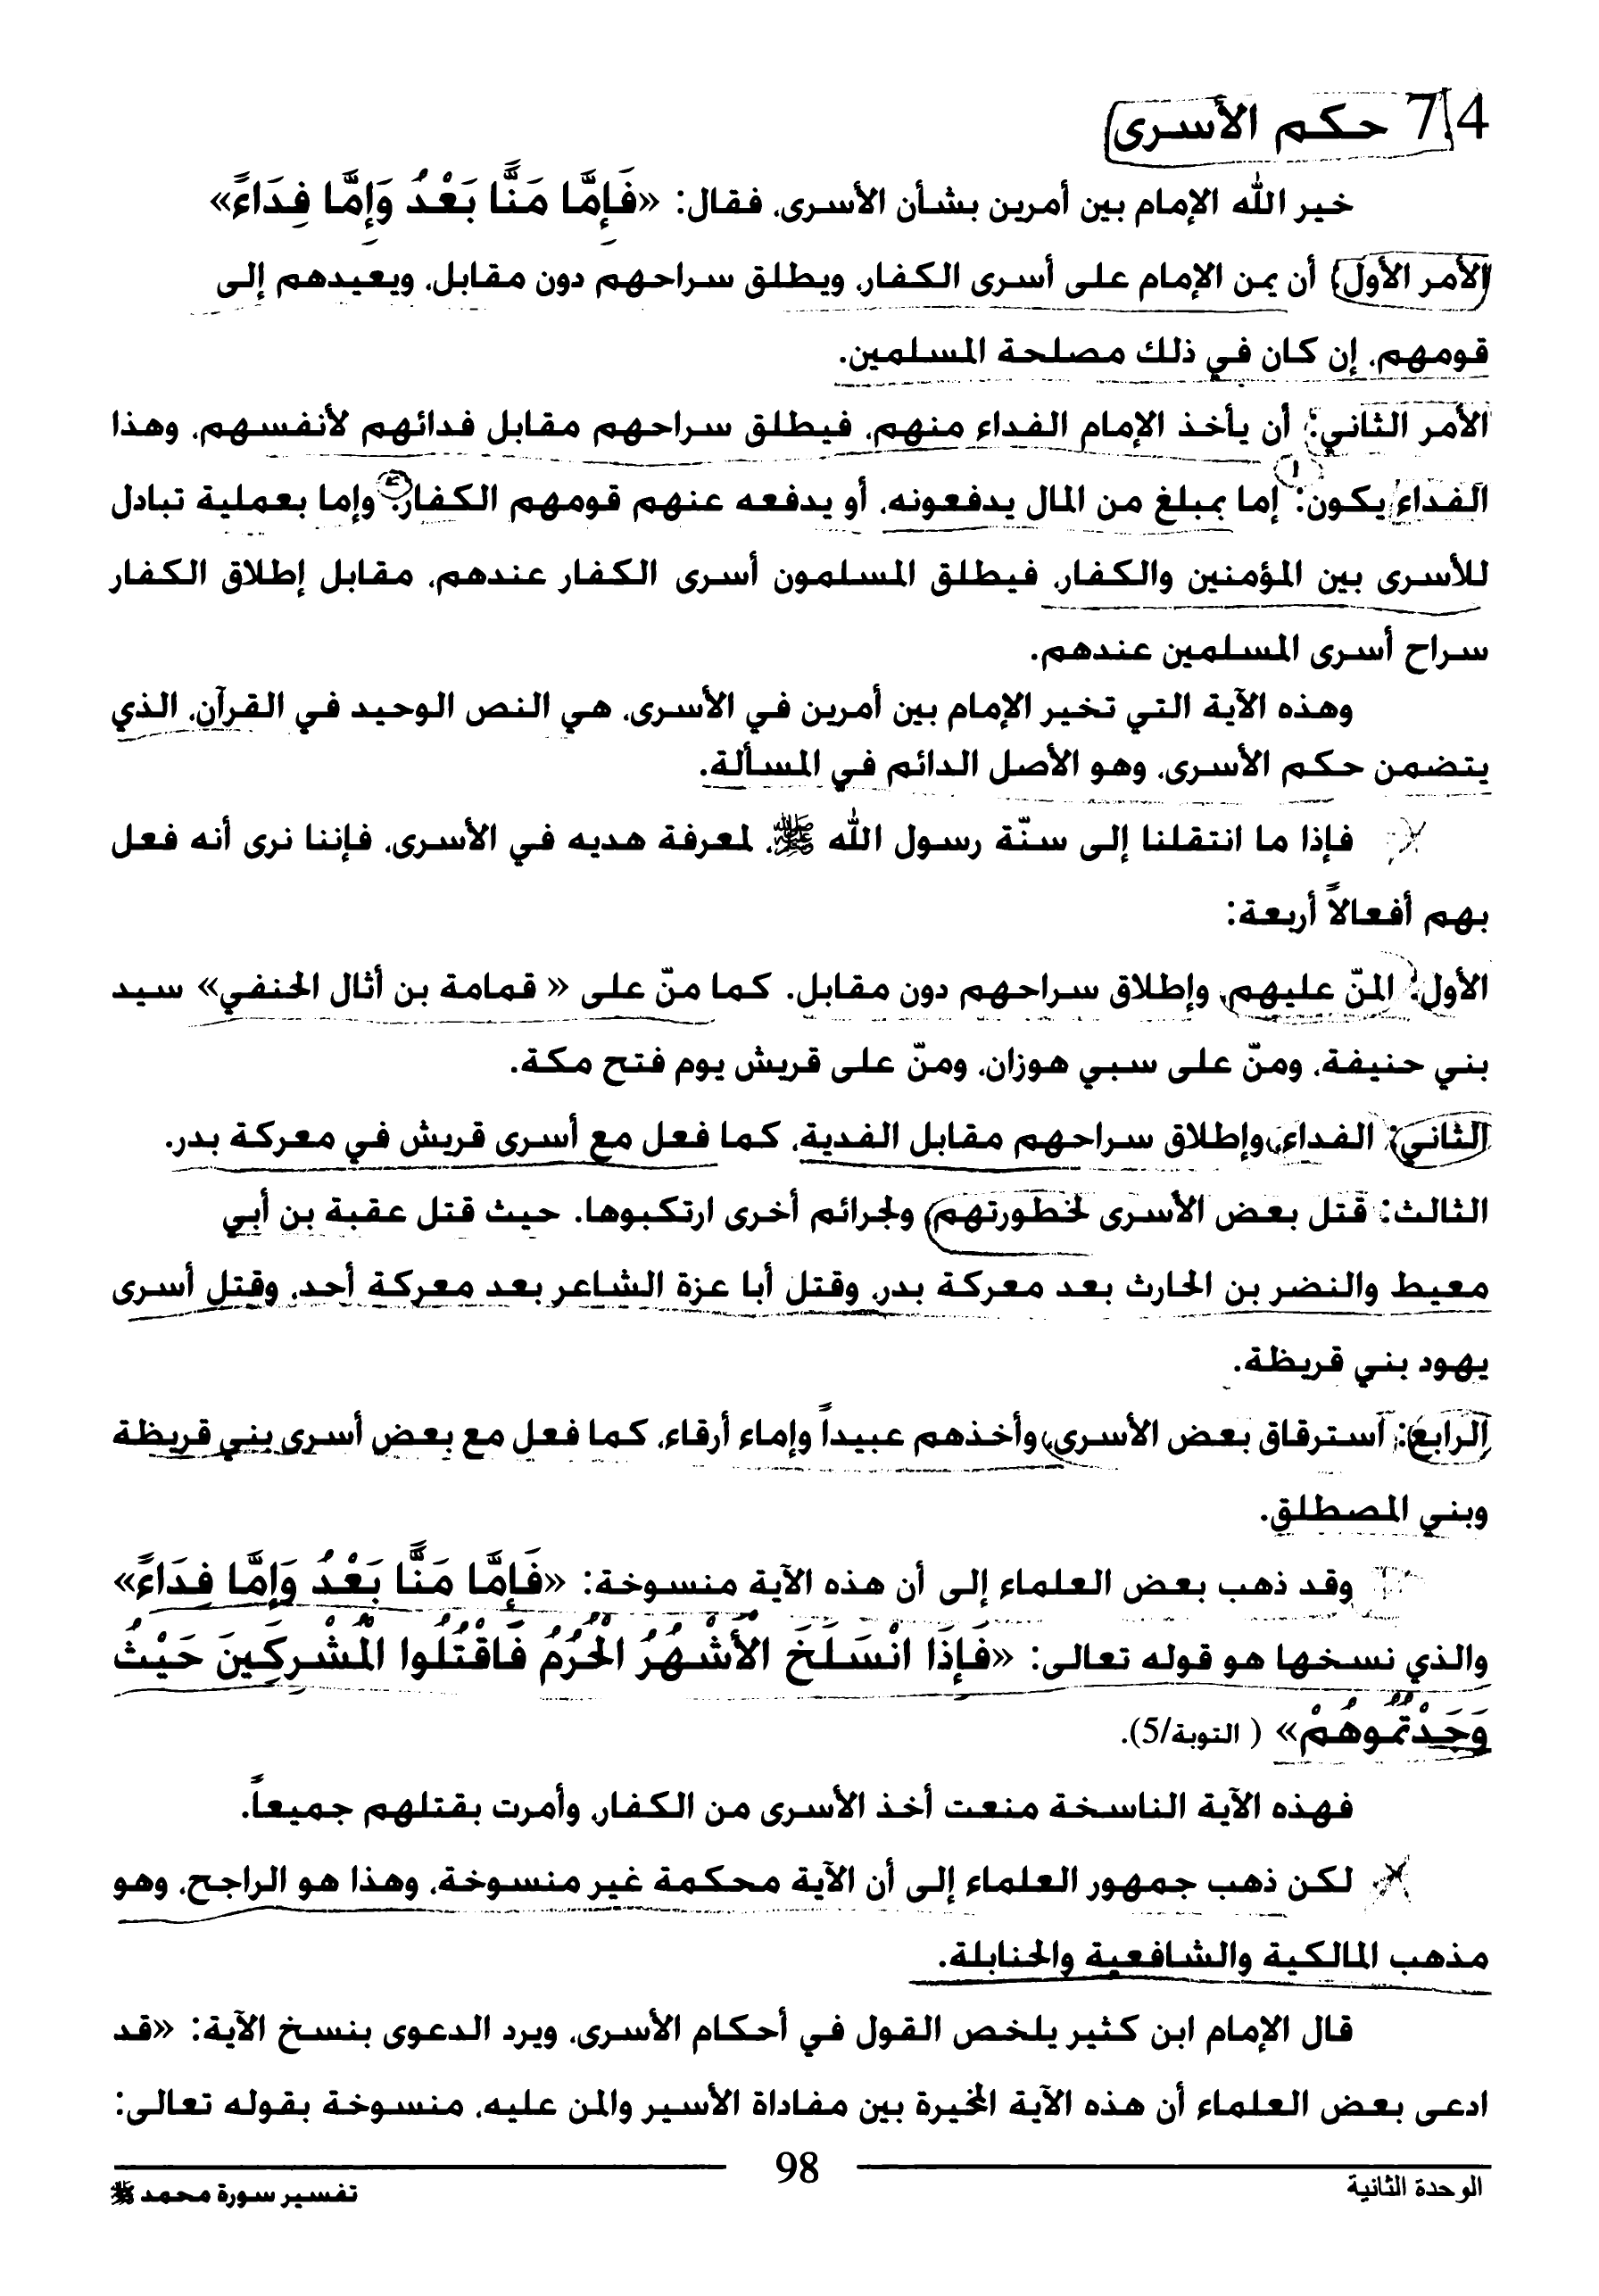 7.4 حكم الأسرى
خير الله الإمام بين أمرين بشأن الأسرى، فقال: «فَإِمَّا مَنًّا بَعْدُ وَإِمَّا فِدَاءً»
الأمر الأول: أن يمن الإمام على أسرى الكفار، ويطلق سراحهم دون مقابل، ويعيدهم إلى
قومهم، إن كان في ذلك مصلحة المسلمين.
الأمر الثاني: أن يأخذ الإمام الفداء منهم، فيطلق سراحهم مقابل فدائهم لأنفسهم، وهذا
الفداء يكون: إما بمبلغ من المال يدفعونه، أو يدفعه عنهم قومهم الكفار. وإما بعملية تبادل
للأسرى بين المؤمنين والكفار، فيطلق المسلمون أسرى الكفار عندهم، مقابل إطلاق الكفار
سراح أسرى المسلمين عندهم.
وهذه الآية التي تخير الإمام بين أمرين في الأسرى، هي النص الوحيد في القرآن، الذي
يتضمن حكم الأسرى، وهو الأصل الدائم في المسألة.
فإذا ما انتقلنا إلى سنّة رسول الله ﷺ، لمعرفة هديه في الأسرى، فإننا نرى أنه فعل
بهم أفعالاً أربعة:
الأول: المنّ عليهم، وإطلاق سراحهم دون مقابل. كما منّ على « قمامة بن أثال الحنفي» سيد
بني حنيفة، ومنّ على سبي هوزان، ومنّ على قريش يوم فتح مكة.
الثاني: الفداء، وإطلاق سراحهم مقابل الفدية، كما فعل مع أسرى قريش في معركة بدر.
الثالث: قتل بعض الأسرى لخطورتهم، ولجرائم أخرى ارتكبوها. حيث قتل عقبة بن أبي
معيط والنضر بن الحارث بعد معركة بدر، وقتل أبا عزة الشاعر بعد معركة أحد، وقتل أسرى
يهود بني قريظة.
الرابع: استرقاق بعض الأسرى، وأخذهم عبيداً وإماء أرقاء، كما فعل مع بعض أسرى بني قريظة
وبني المصطلق.
وقد ذهب بعض العلماء إلى أن هذه الآية منسوخة: «فَإِمَّا مَنًّا بَعْدُ وَإِمَّا فِدَاءً»
والذي نسخها هو قوله تعالى: «فَإِذَا انْسَلَخَ الْأَشْهُرُ الْحُرُمُ فَاقْتُلُوا الْمُشْرِكِينَ حَيْثُ
وَجَدْتُمُوهُمْ» ( التوبة/5).
فهذه الآية الناسخة منعت أخذ الأسرى من الكفار، وأمرت بقتلهم جميعاً.
لكن ذهب جمهور العلماء إلى أن الآية محكمة غير منسوخة، وهذا هو الراجح، وهو
مذهب المالكية والشافعية والحنابلة.
قال الإمام ابن كثير يلخص القول في أحكام الأسرى، ويرد الدعوى بنسخ الآية: «قد
ادعى بعض العلماء أن هذه الآية المخيرة بين مفاداة الأسير والمن عليه، منسوخة بقوله تعالى:
الوحدة الثانية
98
تفسير سورة محمد ﷺ